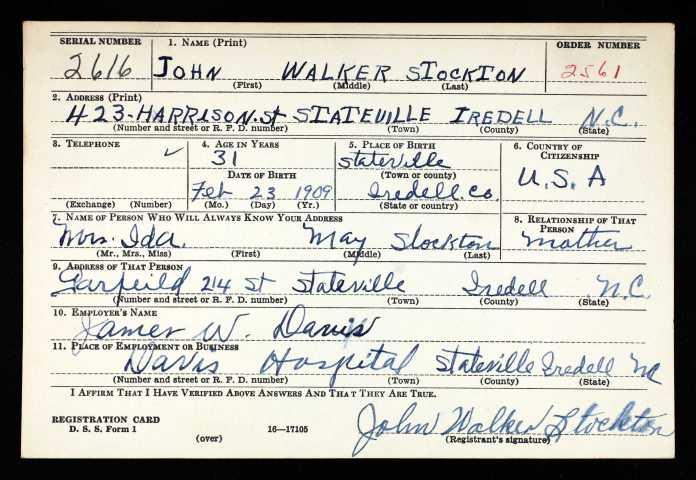 SERIAL NUMBER 1. NAME (Print) ORDER NUMBER
2616 JOHN WALKER STOCKTON 2561
(First) (Middle) (Last)
2. ADDRESS (Print)
423-HARRISON.St STATEVILLE IREDELL N.C.
(Number and street or R. F. D. number) (Town) (County) (State)
3. TELEPHONE 4. AGE IN YEARS 5. PLACE OF BIRTH 6. COUNTRY OF CITIZENSHIP
✓ 31 Stateville U.S.A
DATE OF BIRTH (Town or county)
Feb 23 1909 Iredell.co.
(Exchange) (Number) (Mo.) (Day) (Yr.) (State or country)
7. NAME OF PERSON WHO WILL ALWAYS KNOW YOUR ADDRESS 8. RELATIONSHIP OF THAT PERSON
Mrs. Ida May Stockton Mother
(Mr., Mrs., Miss) (First) (Middle) (Last)
9. ADDRESS OF THAT PERSON
Garfeild 214 St Stateville Iredell N.C.
(Number and street or R. F. D. number) (Town) (County) (State)
10. EMPLOYER'S NAME
James W. Davis
11. PLACE OF EMPLOYMENT OR BUSINESS
Davis Hospital Stateville Iredell NC
(Number and street or R. F. D. number) (Town) (County) (State)
I AFFIRM THAT I HAVE VERIFIED ABOVE ANSWERS AND THAT THEY ARE TRUE.
REGISTRATION CARD John Walker Stockton
D. S. S. Form 1 16—17105 (Registrant's signature)
(over)